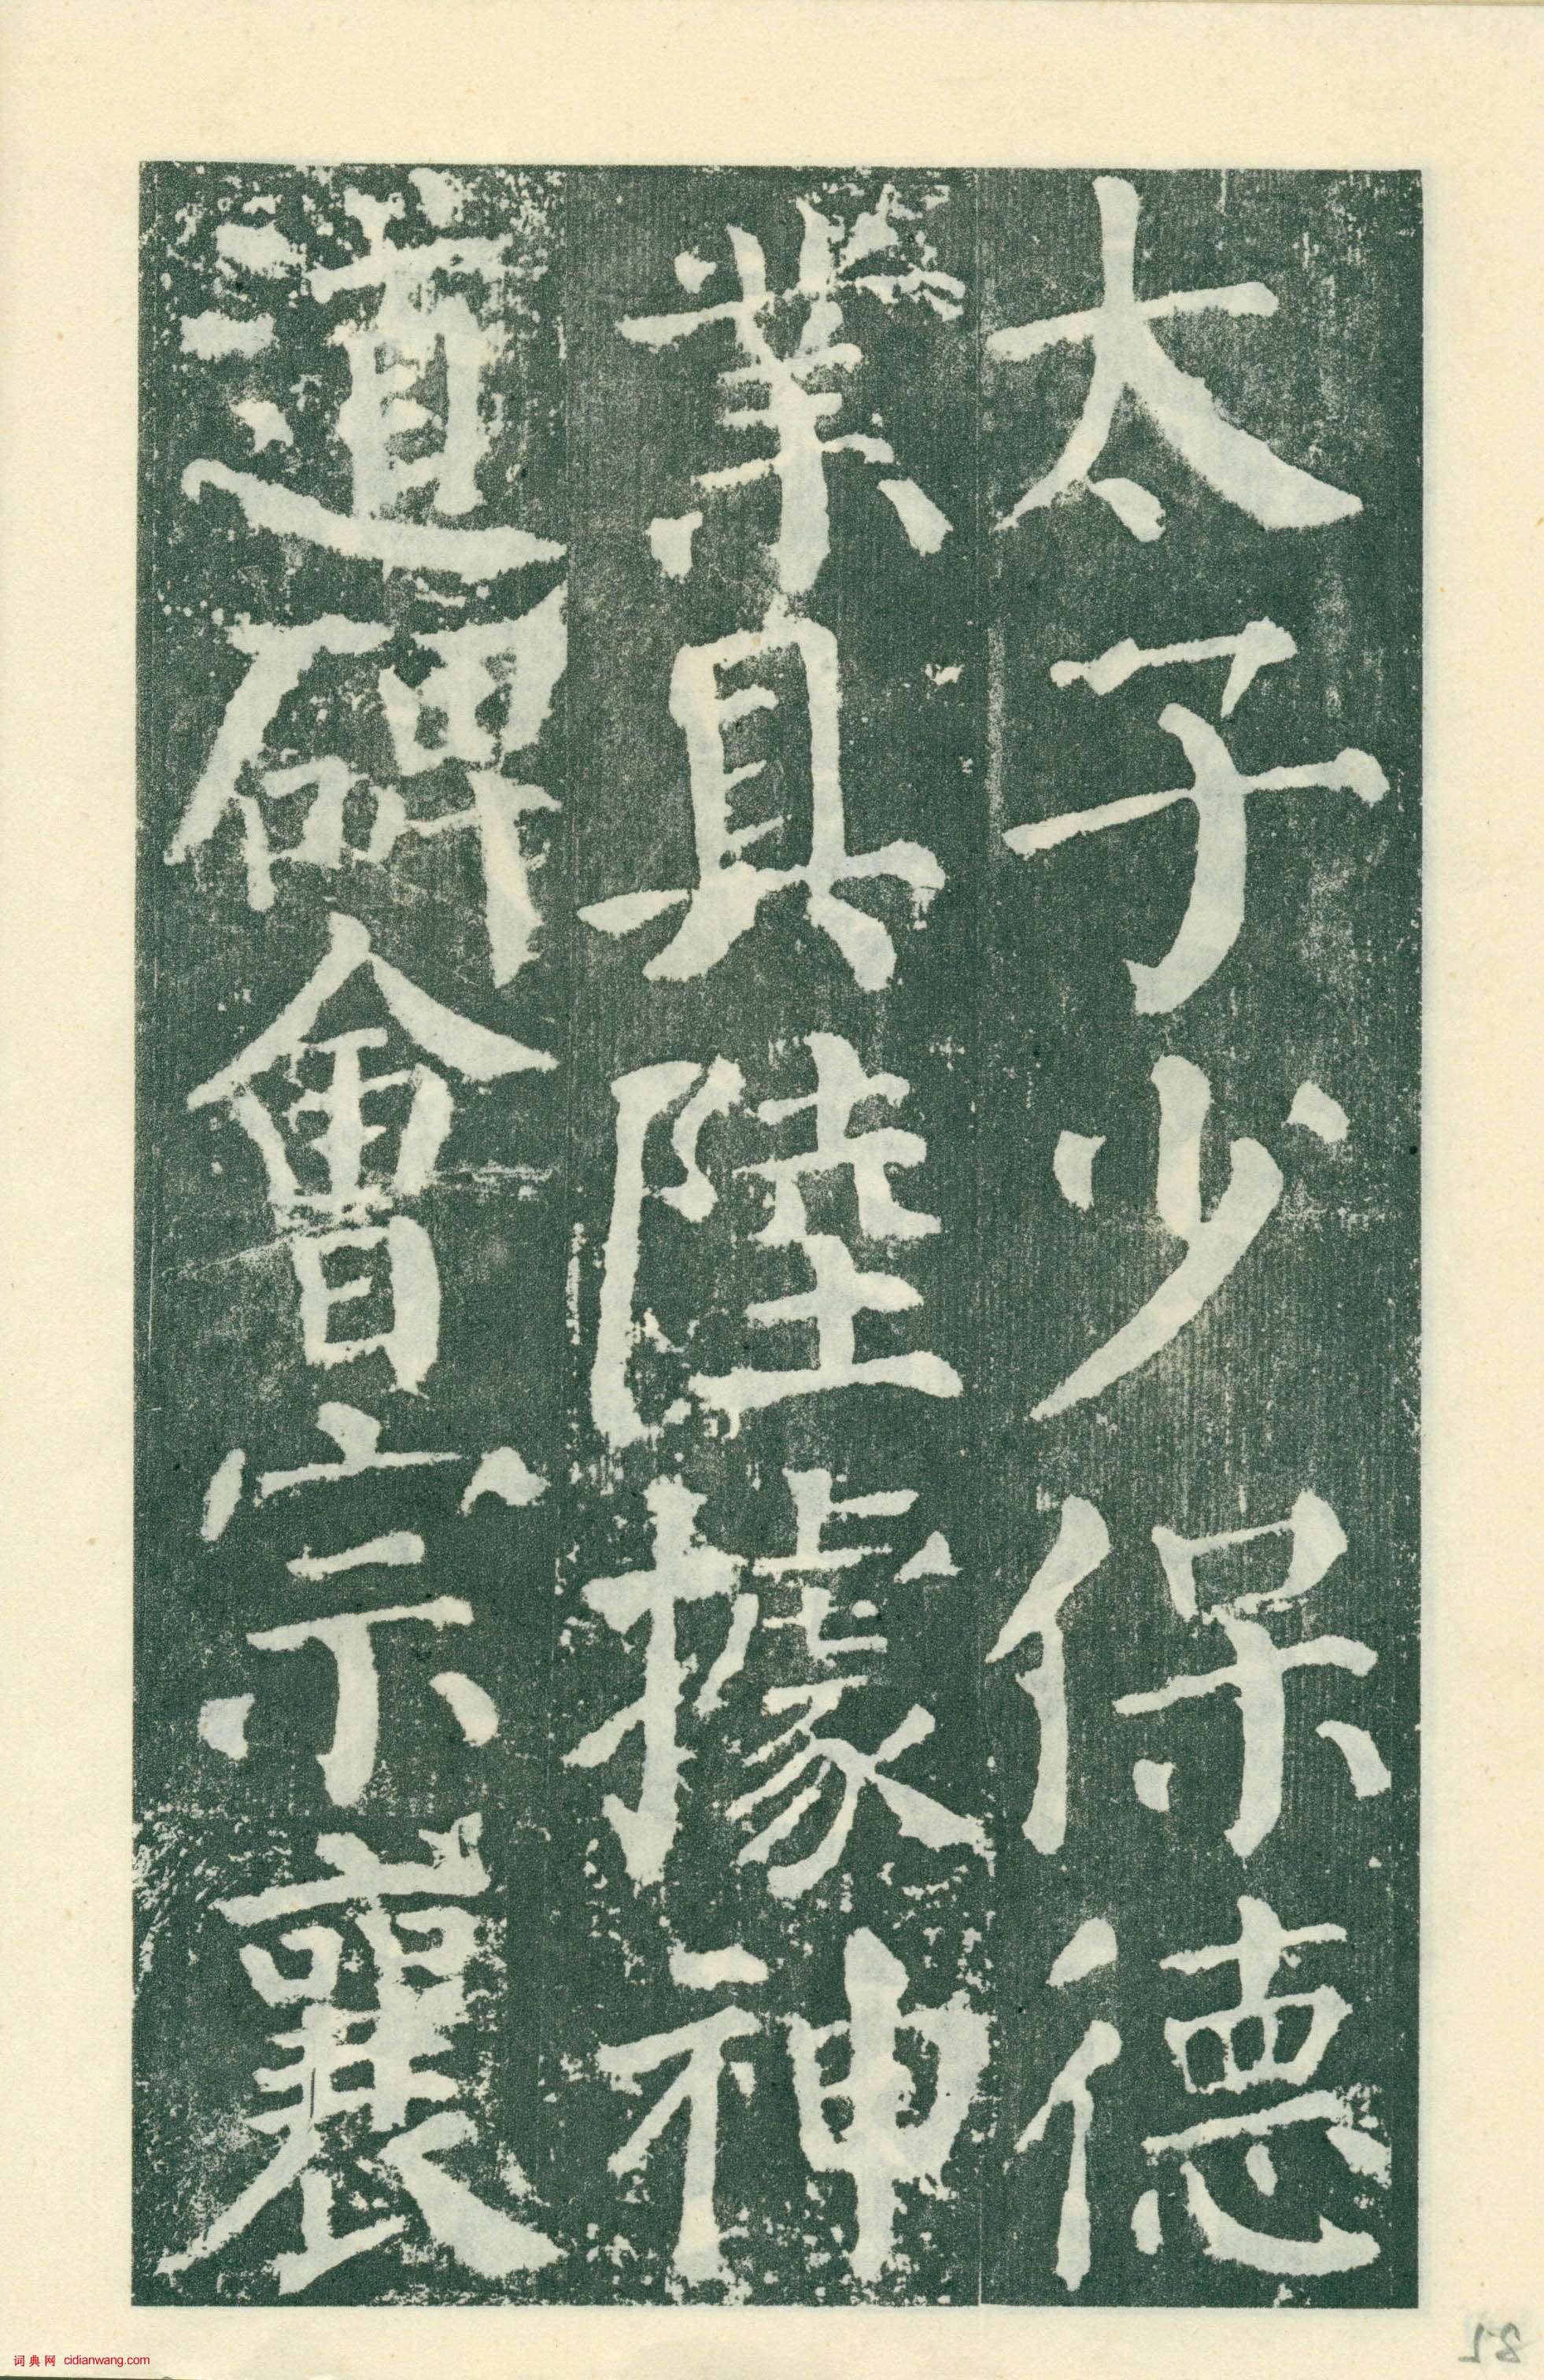 太子少保德
業具陸據神
道碑會宗襄
词典网 cidianwang.com
58